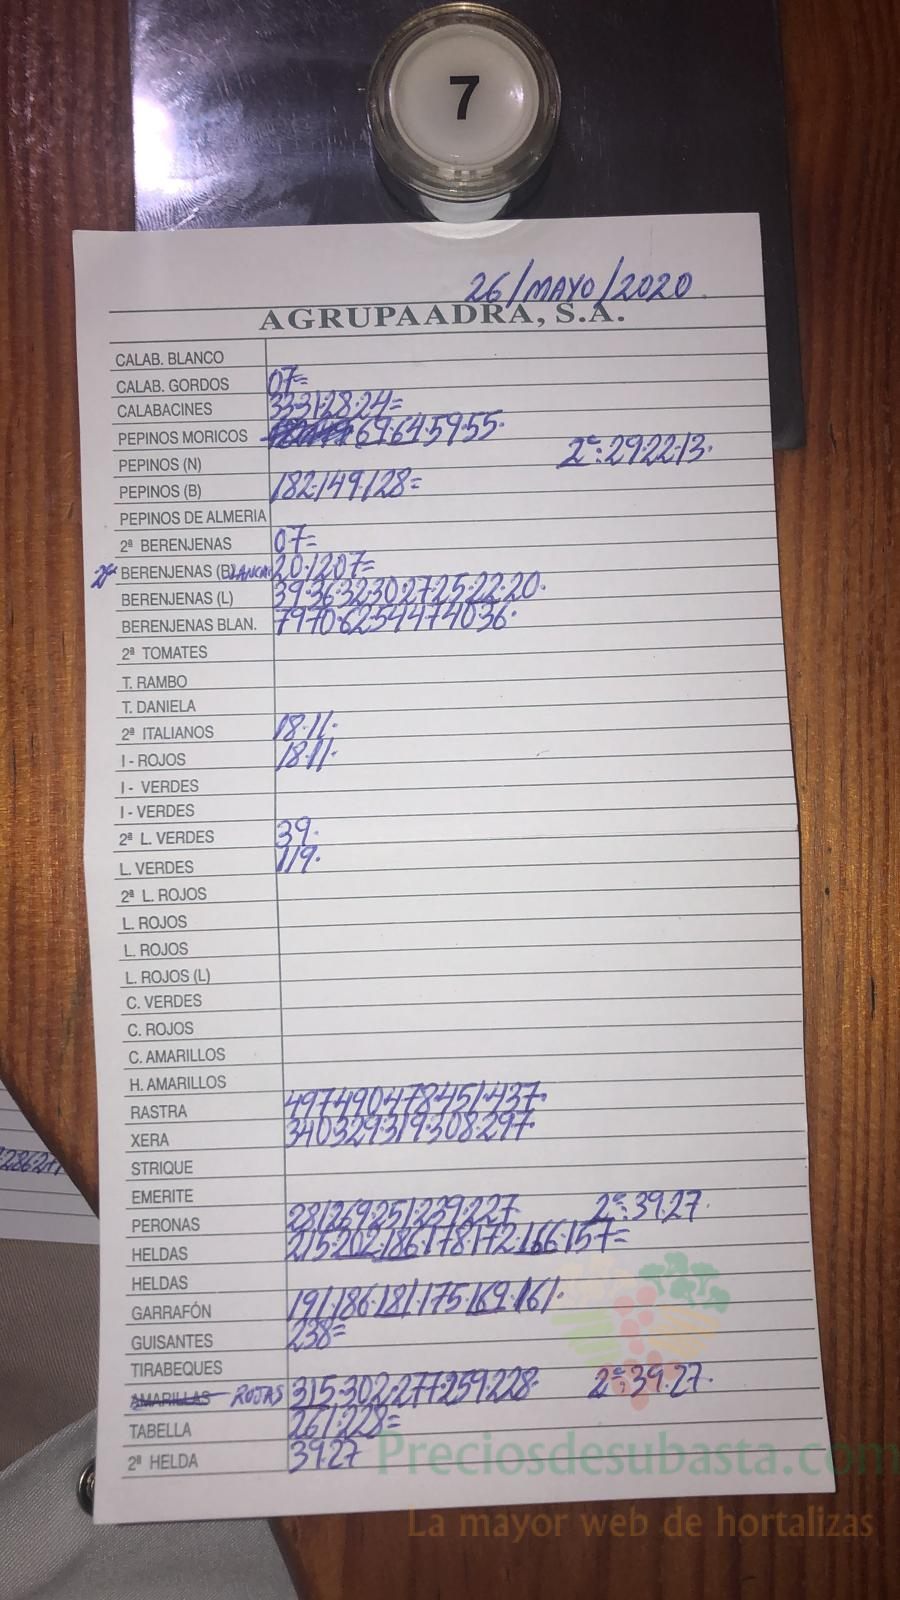 7
26/MAYO/2020.
AGRUPAADRA, S.A.
CALAB. BLANCO
CALAB. GORDOS 07=
CALABACINES 33·31·28·24=
PEPINOS MORICOS 69·64·59·55·
PEPINOS (N) 2ª: 29·22·13·
PEPINOS (B) 182·149·128=
PEPINOS DE ALMERIA
2ª BERENJENAS 07=
2ª BERENJENAS (BLANCA) 20·12·07=
BERENJENAS (L) 39·36·32·30·27·25·22·20·
BERENJENAS BLAN. 79·70·62·54·47·40·36·
2ª TOMATES
T. RAMBO
T. DANIELA
2ª ITALIANOS 18·11·
I - ROJOS 18·11·
I - VERDES
I - VERDES
2ª L. VERDES 39·
L. VERDES 119·
2ª L. ROJOS
L. ROJOS
L. ROJOS
L. ROJOS (L)
C. VERDES
C. ROJOS
C. AMARILLOS
H. AMARILLOS
RASTRA 497·490·478·451·437·
XERA 340·329·319·308·297·
STRIQUE
EMERITE
PERONAS 281·269·251·239·227 2ª: 39·27·
HELDAS 215·202·186·178·172·166·157=
HELDAS
GARRAFÓN 191·186·181·175·169·161·
GUISANTES 238=
TIRABEQUES
AMARILLAS ROJAS 315·302·277·259·228· 2ª: 39·27·
TABELLA 261·228=
2ª HELDA 39·27
Preciosdesubasta.com
La mayor web de hortalizas